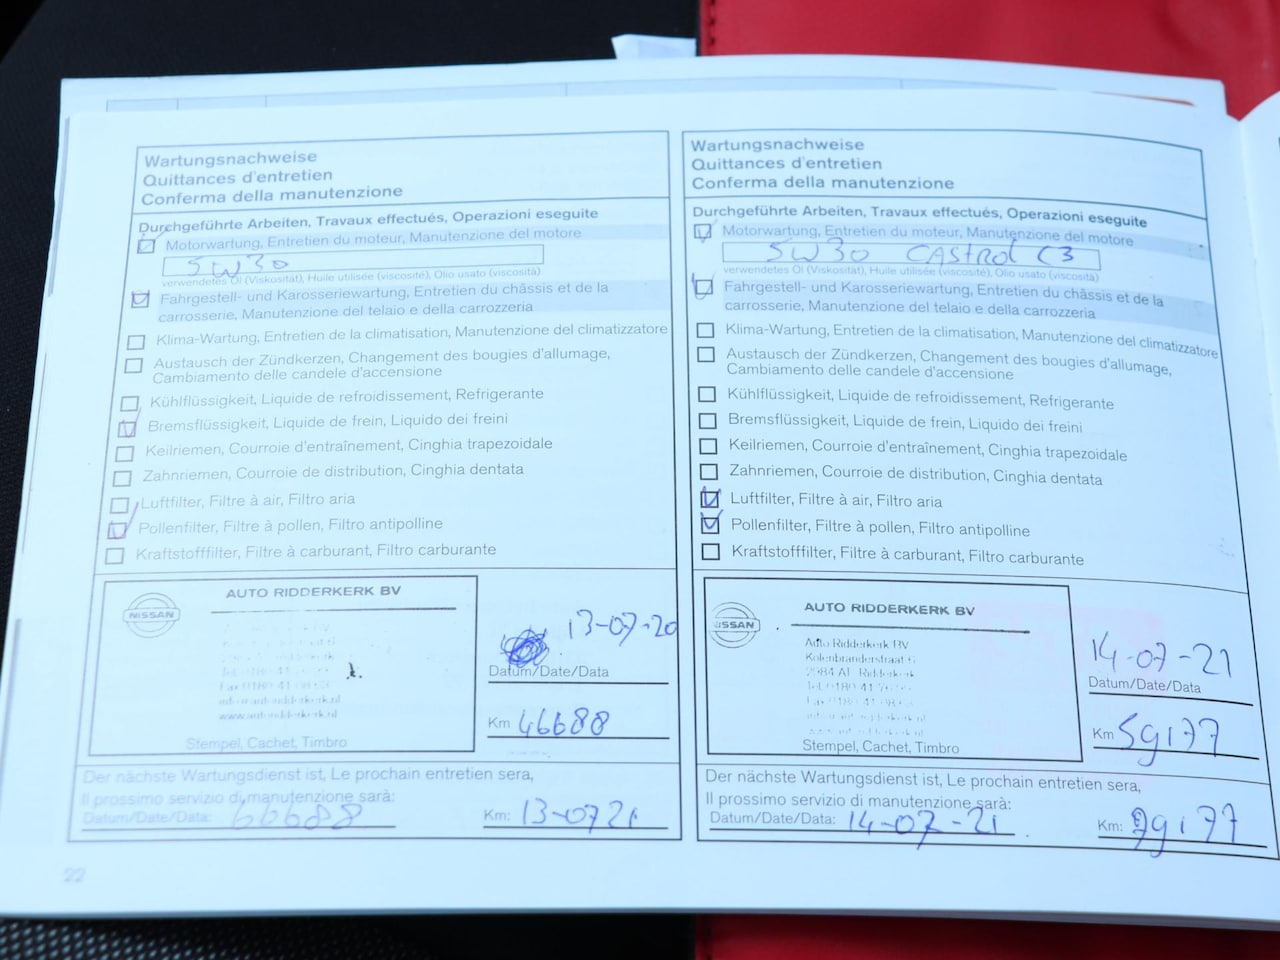 Wartungsnachweise
Quittances d'entretien
Conferma della manutenzione
Durchgeführte Arbeiten, Travaux effectués, Operazioni eseguite
Motorwartung, Entretien du moteur, Manutenzione del motore
5W30
verwendetes Öl (Viskosität), Huile utilisée (viscosité), Olio usato (viscosità)
Fahrgestell- und Karosseriewartung, Entretien du châssis et de la
carrosserie, Manutenzione del telaio e della carrozzeria
Klima-Wartung, Entretien de la climatisation, Manutenzione del climatizzatore
Austausch der Zündkerzen, Changement des bougies d'allumage,
Cambiamento delle candele d'accensione
Kühlflüssigkeit, Liquide de refroidissement, Refrigerante
Bremsflüssigkeit, Liquide de frein, Liquido dei freini
Keilriemen, Courroie d'entraînement, Cinghia trapezoidale
Zahnriemen, Courroie de distribution, Cinghia dentata
Luftfilter, Filtre à air, Filtro aria
Pollenfilter, Filtre à pollen, Filtro antipolline
Kraftstofffilter, Filtre à carburant, Filtro carburante
AUTO RIDDERKERK BV
NISSAN
www.autoridderkerk.nl
Stempel, Cachet, Timbro
13-07-20
Datum/Date/Data
Km 46688
Der nächste Wartungsdienst ist, Le prochain entretien sera,
Il prossimo servizio di manutenzione sarà:
Datum/Date/Data: 66688
Km: 13-0721
22
Wartungsnachweise
Quittances d'entretien
Conferma della manutenzione
Durchgeführte Arbeiten, Travaux effectués, Operazioni eseguite
Motorwartung, Entretien du moteur, Manutenzione del motore
5W30 CASTROL C3
verwendetes Öl (Viskosität), Huile utilisée (viscosité), Olio usato (viscosità)
Fahrgestell- und Karosseriewartung, Entretien du châssis et de la
carrosserie, Manutenzione del telaio e della carrozzeria
Klima-Wartung, Entretien de la climatisation, Manutenzione del climatizzatore
Austausch der Zündkerzen, Changement des bougies d'allumage,
Cambiamento delle candele d'accensione
Kühlflüssigkeit, Liquide de refroidissement, Refrigerante
Bremsflüssigkeit, Liquide de frein, Liquido dei freini
Keilriemen, Courroie d'entraînement, Cinghia trapezoidale
Zahnriemen, Courroie de distribution, Cinghia dentata
Luftfilter, Filtre à air, Filtro aria
Pollenfilter, Filtre à pollen, Filtro antipolline
Kraftstofffilter, Filtre à carburant, Filtro carburante
AUTO RIDDERKERK BV
NISSAN
Auto Ridderkerk BV
Kolenbranderstraat
Ridderkerk
Stempel, Cachet, Timbro
14-07-21
Datum/Date/Data
Km 59177
Der nächste Wartungsdienst ist, Le prochain entretien sera,
Il prossimo servizio di manutenzione sarà:
Datum/Date/Data: 14-07-21
Km: 79177